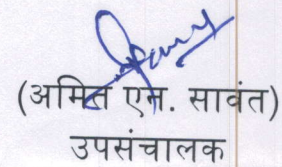 (अमित एन. सावंत)
उपसंचालक